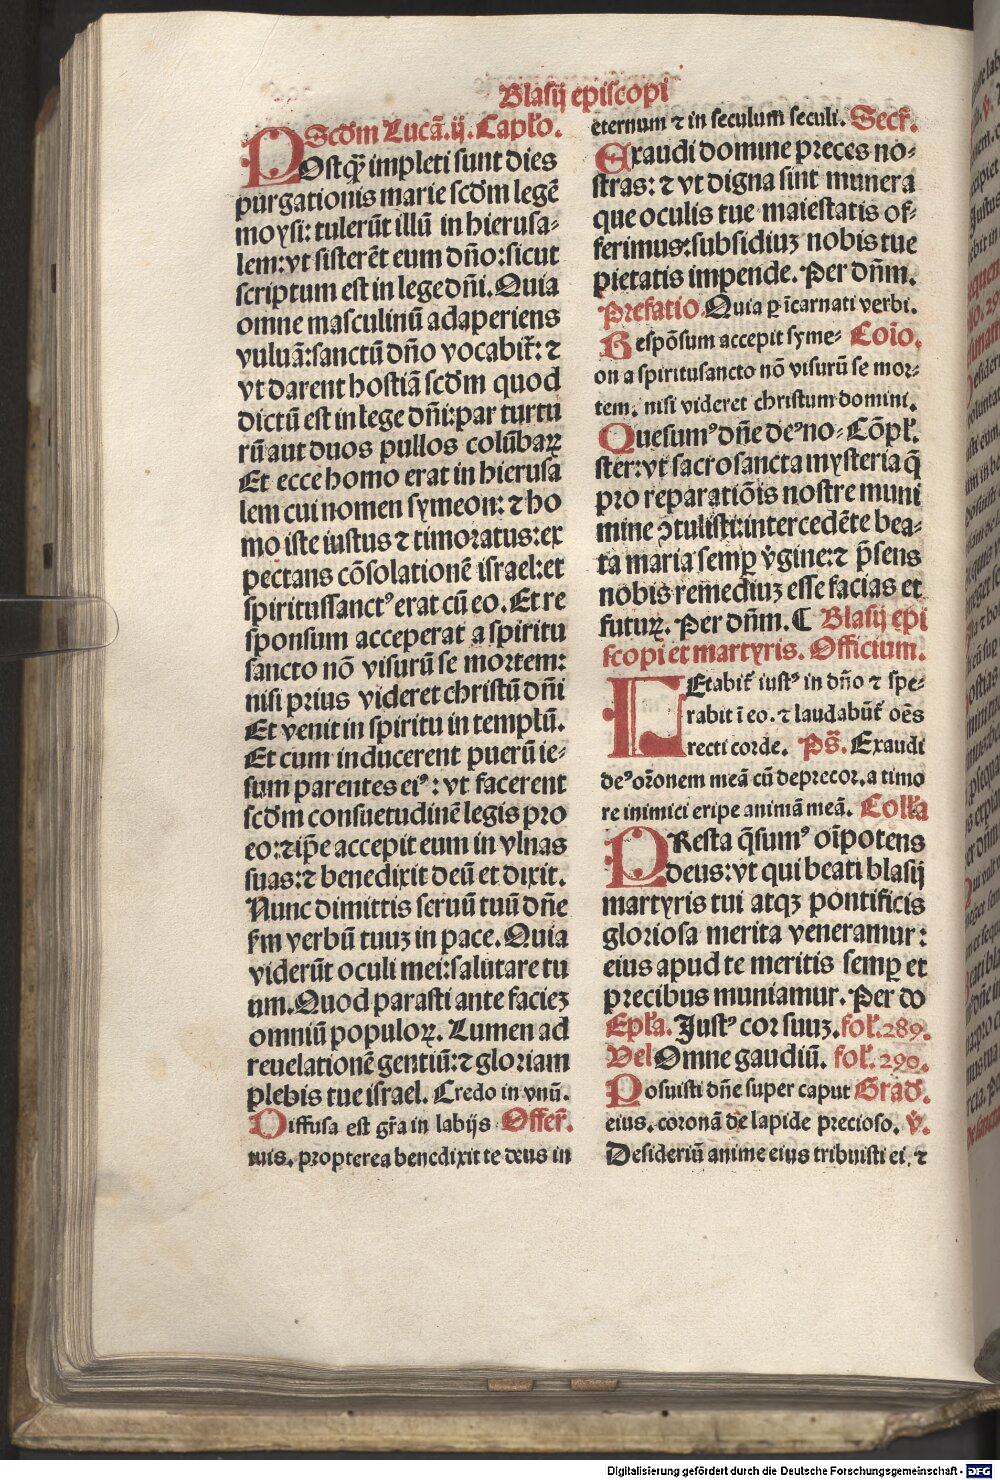 Blasij episcopi
Scdm Lucā.ij.Capło.
POstꝙ̄ impleti sunt dies
purgationis marie scdm legē
moysi: tulerūt illū in hierusa-
lem:vt sisterēt eum dño:sicut
scriptum est in lege dñi. Quia
omne masculinū adaperiens
vuluā:sanctū dño vocabit᷑: ⁊
vt darent hostiā scdm quod
dictū est in lege dñi:par turtu
rū aut duos pullos colūbaꝝ
Et ecce homo erat in hierusa
lem cui nomen symeon: ⁊ ho
mo iste iustus ⁊ timoratus:ex
pectans cōsolationē israel:et
spiritussanctꝰ erat cū eo. Et re
sponsum acceperat a spiritu
sancto nō visurū se mortem:
nisi prius videret christū dñi
Et venit in spiritu in templū.
Et cum inducerent puerū ie-
sum parentes eiꝰ: vt facerent
scdm consuetudinē legis pro
eo:⁊ ip̄e accepit eum in vlnas
suas:⁊ benedixit deū et dixit.
Nunc dimittis seruū tuū dñe
ſm verbū tuuꝫ in pace. Quia
viderūt oculi mei:salutare tu
um. Quod parasti ante facieꝫ
omniū populoꝝ. Lumen ad
reuelationē gentiū:⁊ gloriam
plebis tue israel. Credo in vnū.
Diffusa est gr̄a in labijs Offer̄.
tuis. propterea benedixit te deus in
eternum ⁊ in seculum seculi. Secr̄.
Exaudi domine preces no-
stras: ⁊ vt digna sint munera
que oculis tue maiestatis of-
ferimus:subsidiuꝫ nobis tue
pietatis impende. Per dñm.
Prefatio. Quia ꝑ īcarnati verbi.
Respōsum accepit syme- Coīo.
on a spiritusancto nō visurū se mor-
tem. nisi videret christum domini.
Quesumꝰ dñe deꝰ no- Cōpł.
ster:vt sacrosancta mysteria q̄
pro reparatiōis nostre muni
mine ꝯtulisti:intercedēte bea-
ta maria semꝑ v̄gine:⁊ p̄sens
nobis remediuꝫ esse facias et
futuꝝ. Per dñm. C Blasij epi
scopi et martyris. Officium.
LEtabit᷑ iustꝰ in dño ⁊ spe-
rabit ī eo. ⁊ laudabūt᷑ oēs
recti corde. Ps̄. Exaudi
deꝰ or̄onem meā cū deprecor. a timo
re inimici eripe animā meā. Colłа
PResta q̄sumꝰ oīpotens
deus:vt qui beati blasij
martyris tui atqꝫ pontificis
gloriosa merita veneramur:
eius apud te meritis semꝑ et
precibus muniamur. Per do
Epł̄a. Justꝰ cor suuꝫ. foł.289.
Vel Omne gaudiū. foł.290.
Posuisti dñe super caput Grad̄.
eius. coronā de lapide precioso. v̄.
Desideriū anime eius tribuisti ei. ⁊
Digitalisierung gefördert durch die Deutsche Forschungsgemeinschaft - DFG